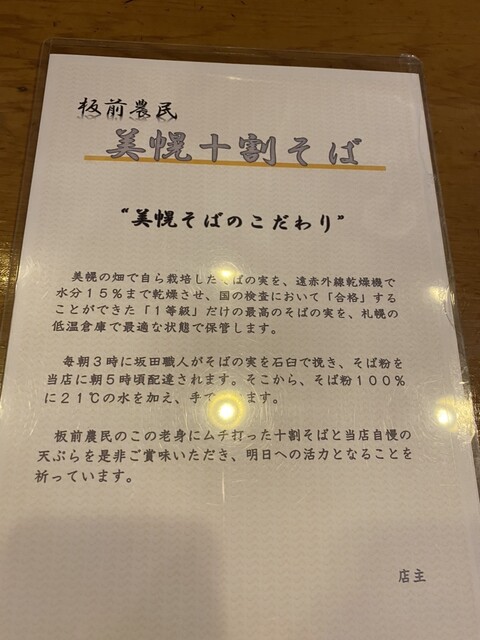 板前農民
美幌十割そば
“美幌そばのこだわり”
美幌の畑で自ら栽培したそばの実を、遠赤外線乾燥機で
水分１５％まで乾燥させ、国の検査において「合格」する
ことができた「１等級」だけの最高のそばの実を、札幌の
低温倉庫で最適な状態で保管します。
毎朝３時に坂田職人がそばの実を石臼で挽き、そば粉を
当店に朝５時頃配達されます。そこから、そば粉１００％
に２１℃の水を加え、手で ます。
板前農民のこの老身にムチ打った十割そばと当店自慢の
天ぷらを是非ご賞味いただき、明日への活力となることを
祈っています。
店主